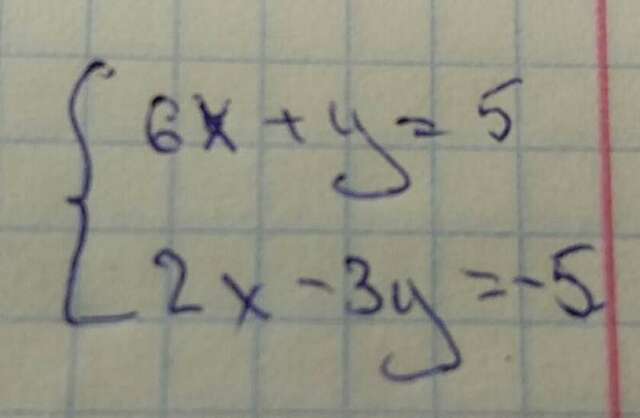 6x + y = 5
2x - 3y = -5